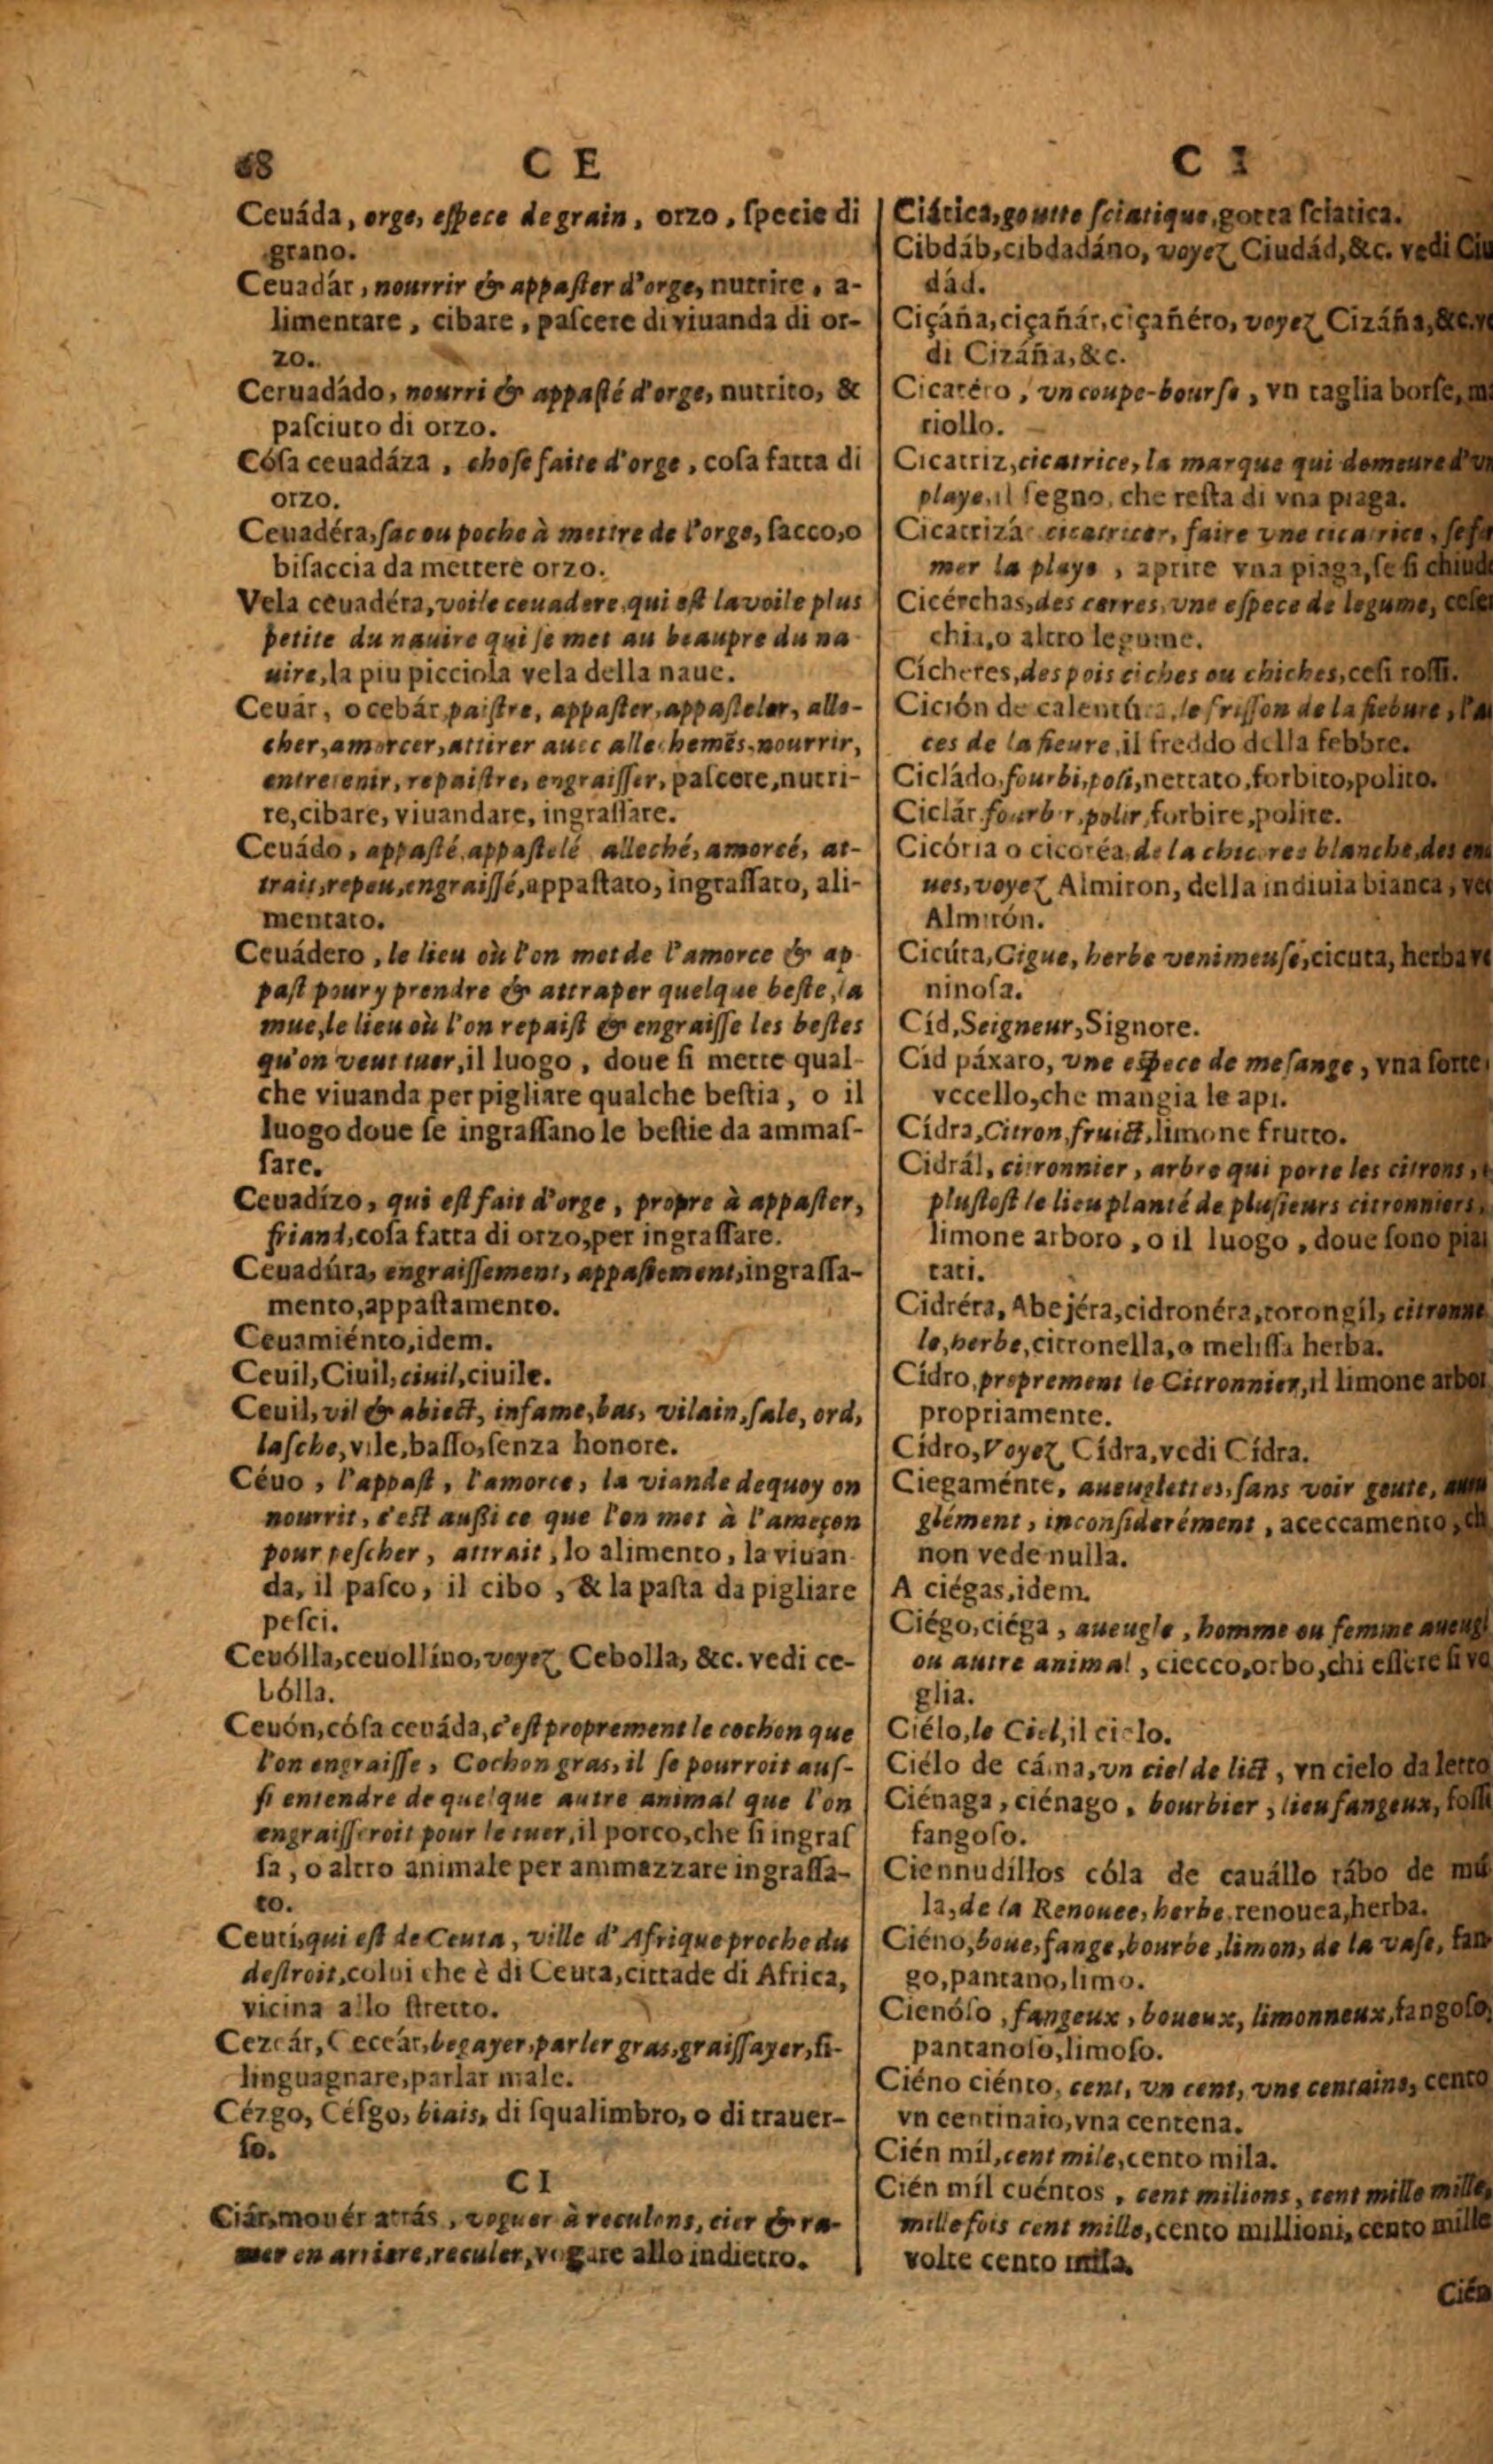 68 C E
Ceuáda, orge, eſpece de grain, orzo, ſpecie di
grano.
Ceuadár, nourrir & appaſter d'orge, nutrire, a-
limentare, cibare, paſcere di viuanda di or-
zo.
Ceruadádo, nourri & appaſté d'orge, nutrito, &
paſciuto di orzo.
Cóſa ceuadáza, choſe faite d'orge, coſa fatta di
orzo.
Ceuadéra, ſac ou poche à mettre de l'orge, ſacco, o
biſaccia da mettere orzo.
Vela ceuadéra, voile ceuadere, qui eſt la voile plus
petite du nauire qui ſe met au beaupre du na
uire, la piu picciola vela della naue.
Ceuár, o cebár, paiſtre, appaſter, appaſteler, alle-
cher, amorcer, attirer auec allechemẽs, nourrir,
entretenir, repaiſtre, engraiſſer, paſcere, nutri-
re, cibare, viuandare, ingraſſare.
Ceuádo, appaſté, appaſtelé alleché, amorcé, at-
trait, repeu, engraiſſé, appaſtato, ingraſſato, ali-
mentato.
Ceuádero, le lieu où l'on met de l'amorce & ap
paſt pour y prendre & attraper quelque beſte, la
mue, le lieu où l'on repaiſt & engraiſſe les beſtes
qu'on veut tuer, il luogo, doue ſi mette qual-
che viuanda per pigliare qualche beſtia, o il
luogo doue ſe ingraſſano le beſtie da ammaſ-
ſare.
Ceuadízo, qui eſt fait d'orge, propre à appaſter,
friant, coſa fatta di orzo, per ingraſſare.
Ceuadúra, engraiſſement, appaſtement, ingraſſa-
mento, appaſtamento.
Ceuamiénto, idem.
Ceuil, Ciuil, ciuil, ciuile.
Ceuil, vil & abiect, infame, bas, vilain, ſale, ord,
laſche, vile, baſſo, ſenza honore.
Céuo, l'appaſt, l'amorce, la viande dequoy on
nourrit, c'eſt auſſi ce que l'on met à l'ameçon
pour peſcher, attrait, lo alimento, la viuan-
da, il paſco, il cibo, & la paſta da pigliare
peſci.
Ceuólla, ceuollíno, voyez Cebolla, &c. vedi ce-
bólla.
Ceuón, cóſa ceuáda, c'eſt proprement le cochon que
l'on engraiſſe, Cochon gras, il ſe pourroit auſ-
ſi entendre de quelque autre animal que l'on
engraiſſeroit pour le tuer, il porco, che ſi ingraſ
ſa, o altro animale per ammazzare ingraſſa-
to.
Ceuti, qui eſt de Ceuta, ville d'Afrique proche du
deſtroit, colui che è di Ceuta, cittade di Africa,
vicina allo ſtretto.
Cezeár, Ceceár, begayer, parler gras, graiſſayer, ſi-
linguagnare, parlar male.
Cézgo, Céſgo, biais, di ſqualimbro, o di trauer-
ſo.
C I
Ciár, mouér atrás, voguer à reculons, cier & ra-
mer en arriere, reculer, vogare allo indietro.
C I
Ciática, goutte ſciatique, gotta ſciatica.
Cibdáb, cibdadáno, voyez Ciudád, &c. vedi Ciu
dád.
Ciçáña, ciçañár, ciçañéro, voyez Cizáña, &c. ve
di Cizáña, &c.
Cicatéro, vn coupe-bourſe, vn taglia borſe,
riollo.
Cicatriz, cicatrice, la marque qui demeure d'vn
playe, il ſegno, che reſta di vna piaga.
Cicatrizá cicatricer, faire vne cicatrice,
mer la playe, aprire vna piaga, ſe ſi chiud
Cicérchas, des cerres, vne eſpece de legume,
chia, o altro legume.
Cícheres, des pois ciches ou chiches, ceſi roſſi.
Cición de calentúra, le friſſon de la fiebure,
ces de la fieure, il freddo della febbre.
Cicládo, fourbi, poli, nettato, forbito, polito.
Ciclár, fourbir, polir, forbire, polire.
Cicória o cicoréa, de la chicoree blanche, des en
ues, voyez Almiron, della indiuia bianca, ve
Almirón.
Cicúta, Cigue, herbe venimeuſe, cicuta, herba ve
ninoſa.
Cid, Seigneur, Signore.
Cid páxaro, vne eſpece de meſange, vna ſorte
vccello, che mangia le api.
Cídra, Citron, fruict, limone frutto.
Cidrál, citronnier, arbre qui porte les citrons,
pluſtoſt le lieu planté de pluſieurs citronniers,
limone arboro, o il luogo, doue ſono pian
tati.
Cidréra, Abejéra, cidronéra, torongíl, citronne
le, herbe, citronella, o meliſſa herba.
Cídro, proprement le Citronnier, il limone arbor
propriamente.
Cídro, Voyez Cídra, vedi Cídra.
Ciegaménte, aueuglettes, ſans voir goute, aueu
glément, inconſiderément, aceccamento, ch
non vede nulla.
A ciégas, idem.
Ciégo, ciéga, aueugle, homme ou femme aueugl
ou autre animal, ciecco, orbo, chi eſſere ſi vo
glia.
Ciélo, le Ciel, il cielo.
Ciélo de cáma, vn ciel de lict, vn cielo da letto
Ciénaga, ciénago, bourbier, lieu fangeux, foſſ
fangoſo.
Ciennudíllos cóla de cauállo rábo de mú
la, de la Renouee, herbe, renouea, herba.
Ciéno, boue, fange, bourbe, limon, de la vaſe, fan
go, pantano, limo.
Cienóſo, fangeux, boueux, limonneux, fangoſo,
pantanoſo, limoſo.
Ciéno ciénto, cent, vn cent, vne centaine, cento
vn centinaio, vna centena.
Cién mil, cent mile, cento mila.
Cién mil cuéntos, cent milions, cent mille mille,
mille fois cent mille, cento millioni, cento mille
volte cento mila.
Cién